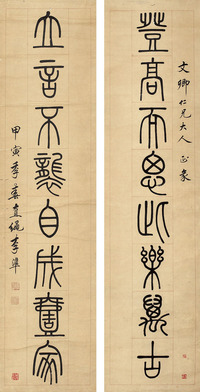 文卿仁兄大人正篆
登高而思此樂萬古
立言不襲自成壹家
甲寅季春直繩李準